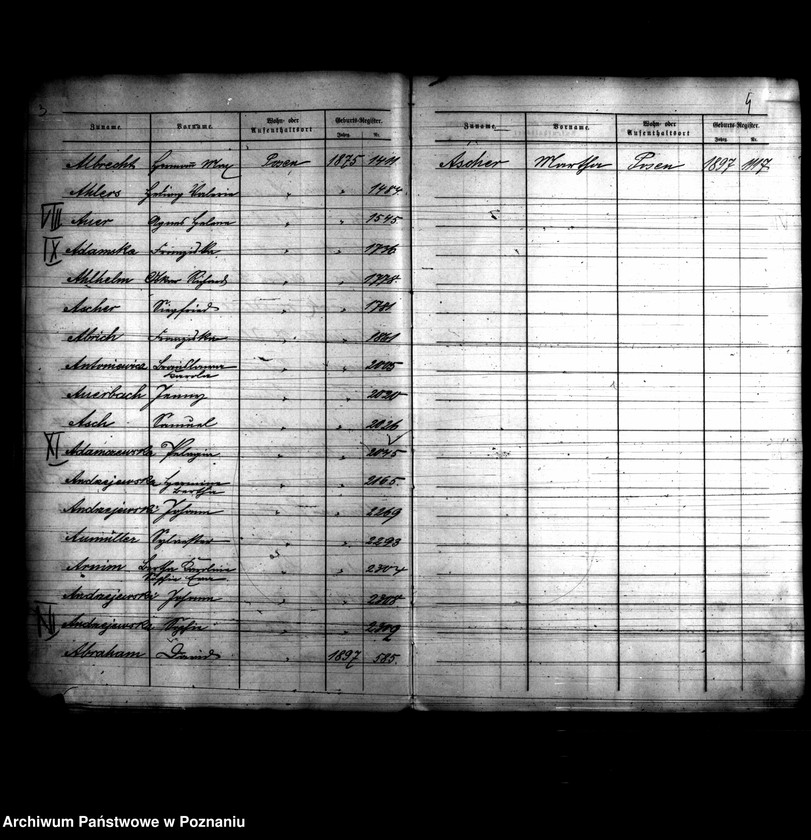 3
Zuname. Vorname. Wohn- oder Aufenthaltsort Geburts-Register. Jahrg. Nr.
Albrecht Hermann Max Posen 1875 1411
Ahlers Hedwig Valerie " " 1484
VIII Auer Agnes Helene " " 1545
IX Adamska Franziska " " 1736
Ahlhelm Oskar Richard " " 1778
Ascher Siegfried " " 1781
Albrich Franziska " " 1861
Antoniewicz " " 2005
Auerbach Jenny " " 2020
Asch Samuel " " 2026
XI Adamczewska Pelagia " " 2045
Andrzejewska Hermine Bertha " " 2165
Andrzejewski Johann " " 2269
Aumüller Sylvester " " 2293
Arnim Bertha Karoline " " 2304
Andrzejewski Johann " " 2308
XII Andrzejewska Sophie " " 2309
Abraham David " 1897 585
4
Zuname. Vorname. Wohn- oder Aufenthaltsort Geburts-Register. Jahrg. Nr.
Ascher Martha Posen 1897 1117
Archiwum Państwowe w Poznaniu